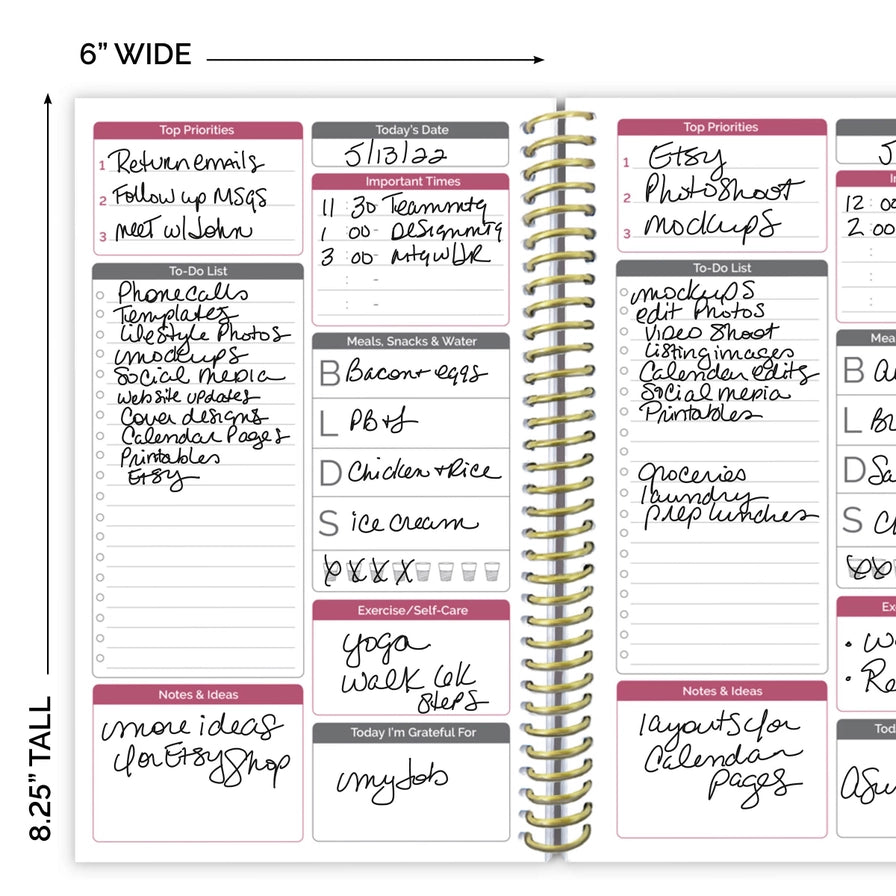 6” WIDE
8.25” TALL
Top Priorities
1 Return emails
2 Follow up MSGS
3 meet w/ John
To-Do List
Phone calls
Templates
Lifestyle Photos
mockups
Social media
website updates
Cover designs
Calendar Pages
Printables
Etsy
Notes & Ideas
more ideas
for Etsy Shop
Today's Date
5/13/22
Important Times
11 : 30 - Team mtg
1 : 00 - Design mtg
3 : 00 - mtg w/
: -
: -
Meals, Snacks & Water
B Bacon + eggs
L PB+J
D Chicken + Rice
S ice cream
Exercise/Self-Care
yoga
walk
steps
Today I'm Grateful For
my job
Top Priorities
1 Etsy
2 Photoshoot
3 mockups
To-Do List
mockups
edit Photos
Video Shoot
Listing images
Calendar edits
Social media
Printables
groceries
laundry
prep lunches
Notes & Ideas
layouts for
Calendar
pages
5
12 : 00
2 : 00
:
:
:
Mea
B
L
D Sa
S
Ex
Tod